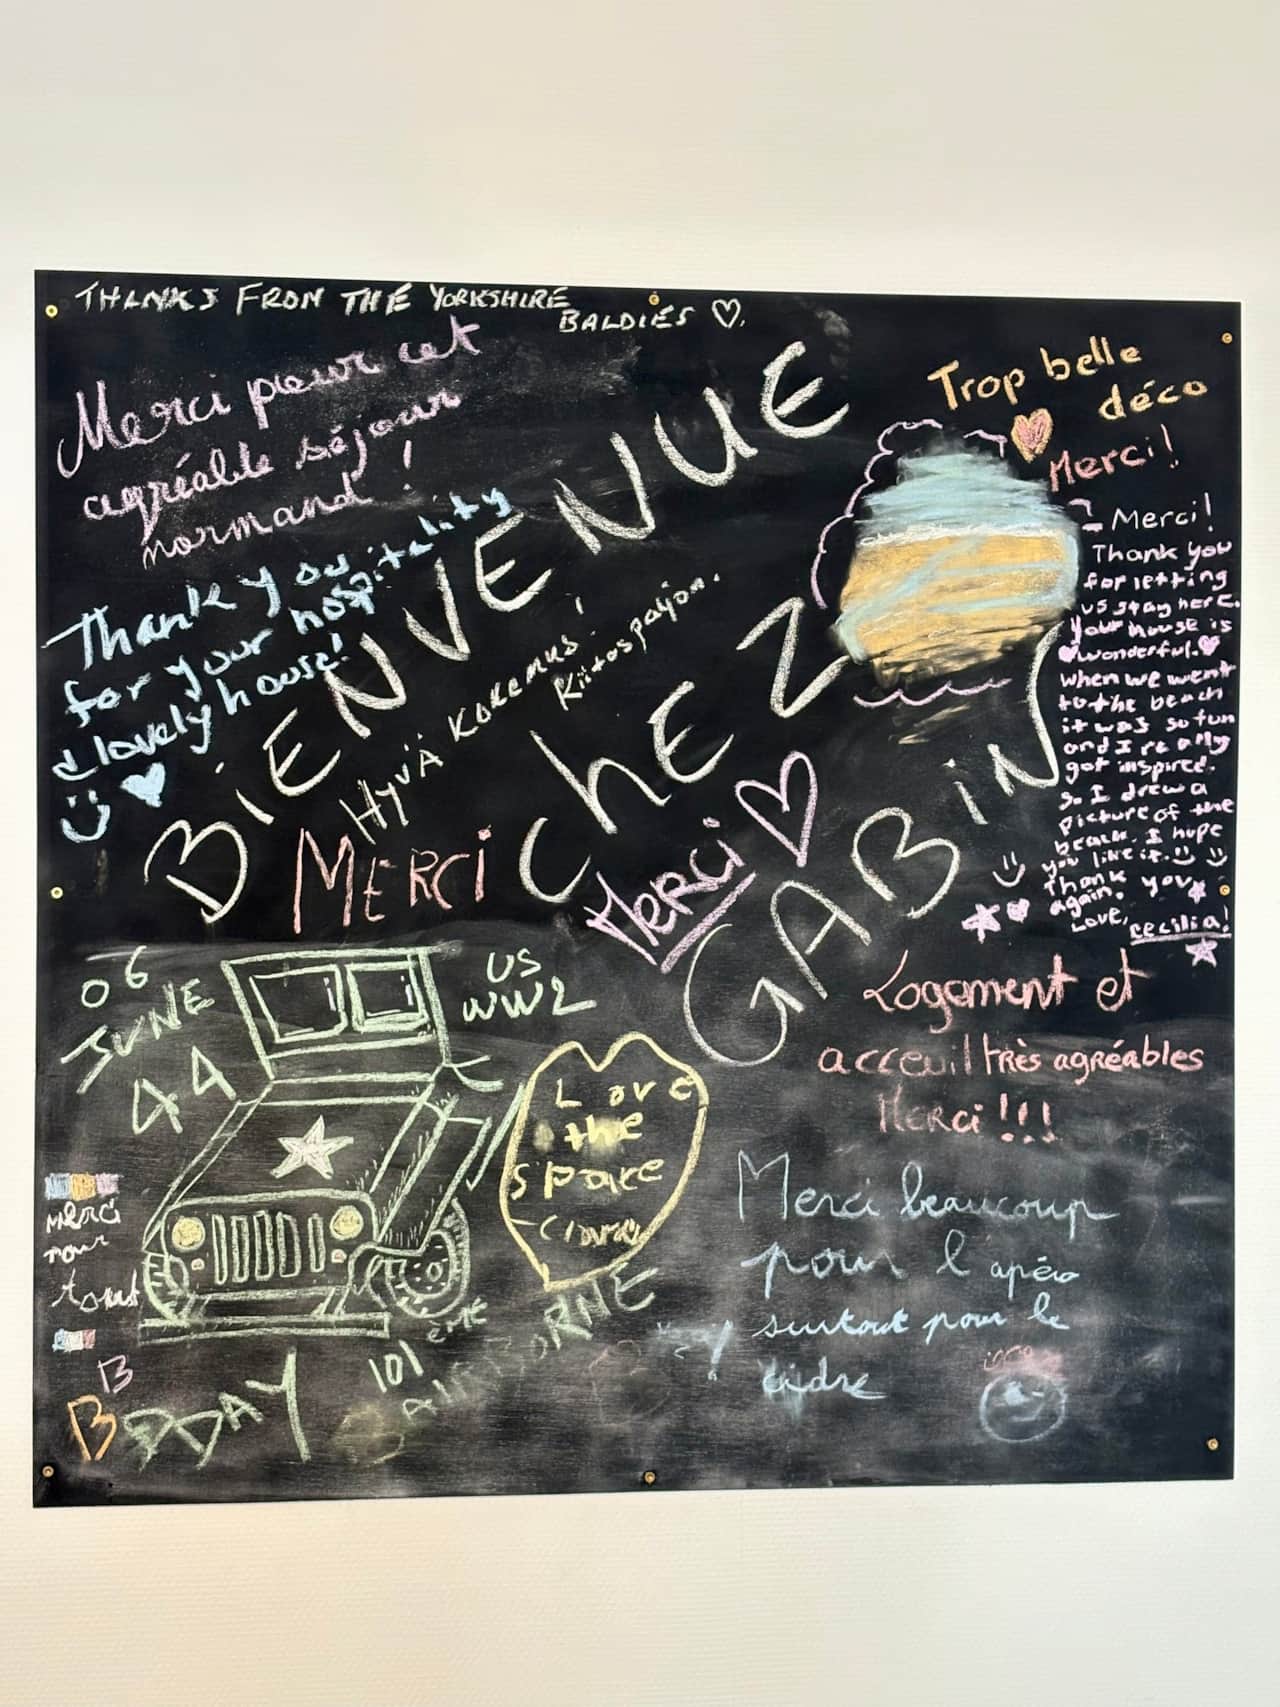 THANKS FROM THE YORKSHIRE
BALDIES
Merci pour cet
agréable séjour
normand !
Thank you
for your hospitality
& lovely house!
BIENVENUE
CHEZ
GABIN
HYVÄ KOKEMUS!
Kiitos paljon.
MERCI
Merci
Trop belle
déco
Merci!
Merci!
Thank you
for letting
us stay here.
your house is
wonderful.
when we went
to the beach
it was so fun
and I really
got inspired.
so I drew a
picture of the
beach. I hope
you like it.
Thank you
again.
Love,
cecilia!
06
JUNE
44
US
WW2
Love
the
space
Logement et
acceuil très agréables
Merci!!!
Merci beaucoup
pour l'apéro
surtout pour le
cidre
merci
pour
tout
B
B
DDAY
101 ÈME
AIRBORNE